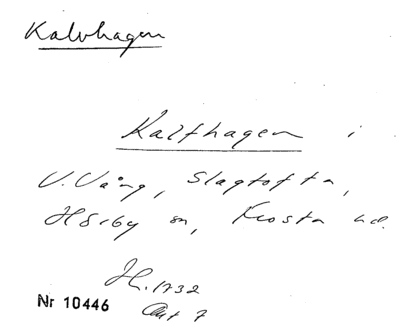 Kalvhagen
Kalfhagen i
V. Vång, Slagtofta,
Hörby sn, Frosta hd.
Jh. 1732
Akt 7
Nr 10446